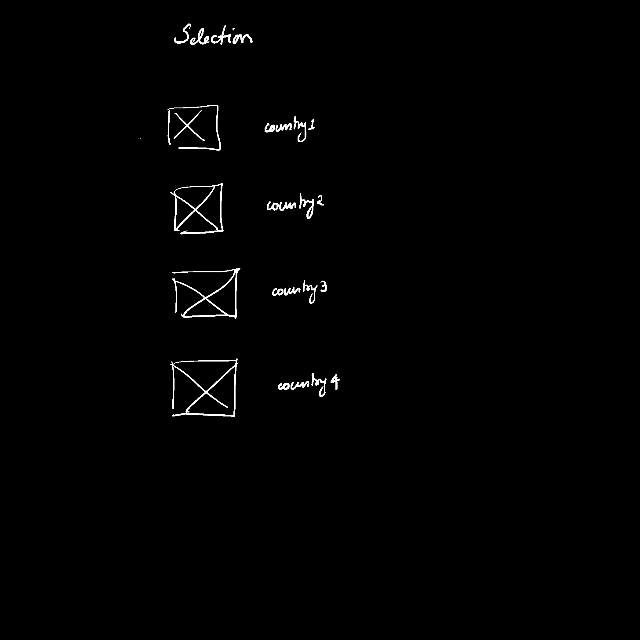 Selection
country1
country2
country3
country4